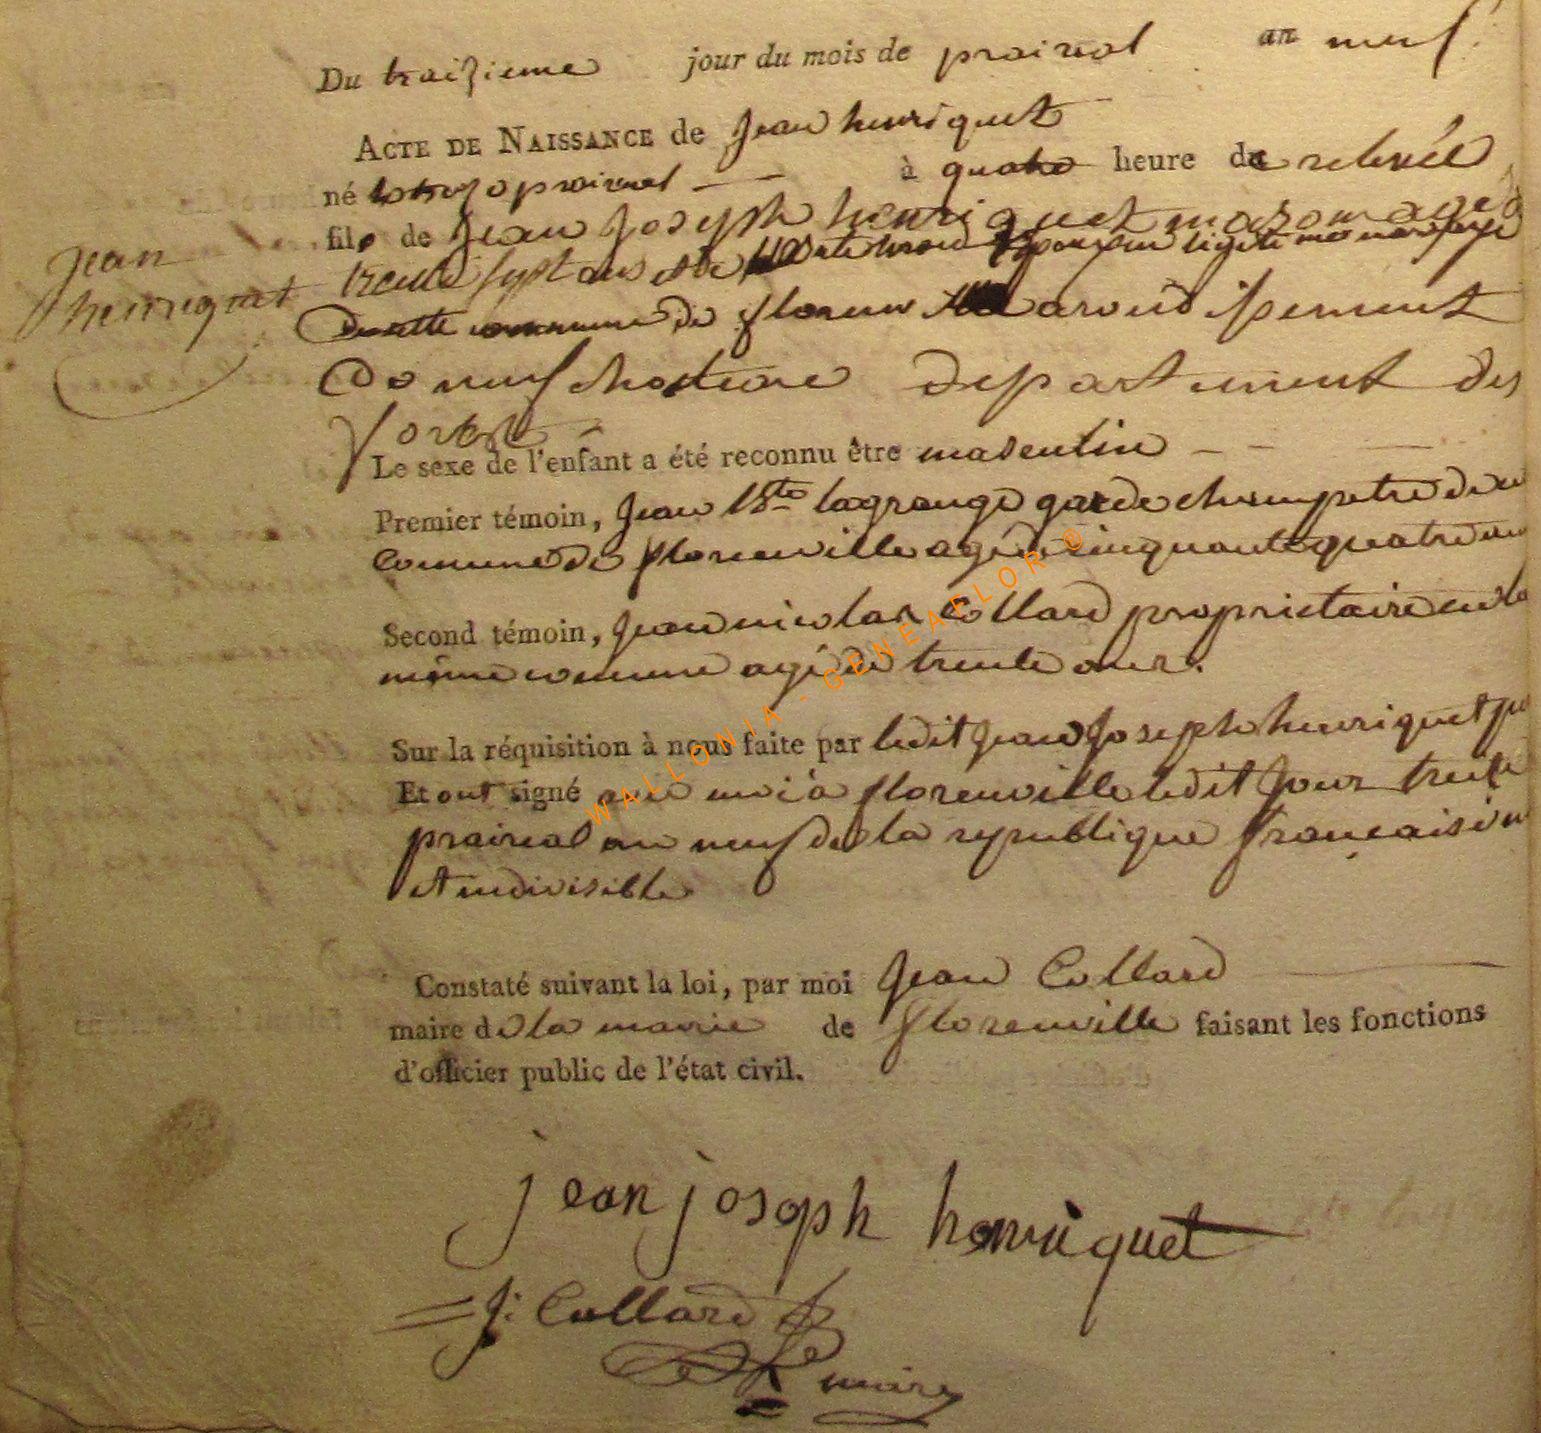 Du traizieme jour du mois de prairial an neuf.
ACTE DE NAISSANCE de Jean henriquet
né le treze prairial — à quatre heure de relevée
fils de Jean Joseph henriquet mazon agé de
Jean
henriquet
trente sept ans et de
commune de floren arondissement
De neufchateau departement des
forest
Le sexe de l'enfant a été reconnu être masculin — —
Premier témoin, Jean Bte lagrange garde champetre de
commune de florenville agé de cinquante quatre an
Second témoin, Jean nicolas Collard proprietaire en la
même commune agé de trente ans.
Sur la réquisition à nous faite par ledit Jean Joseph henriquet
Et ont signé avec moi à florenville ledit Jour treize
prairial an neuf de la republique française
et indivisible
Constaté suivant la loi, par moi Jean Collard
maire de la mairie de florenville faisant les fonctions
d'officier public de l'état civil.
jean joseph henriquet
J: Collard
maire
WALLONIA - GENEAFLOR ©